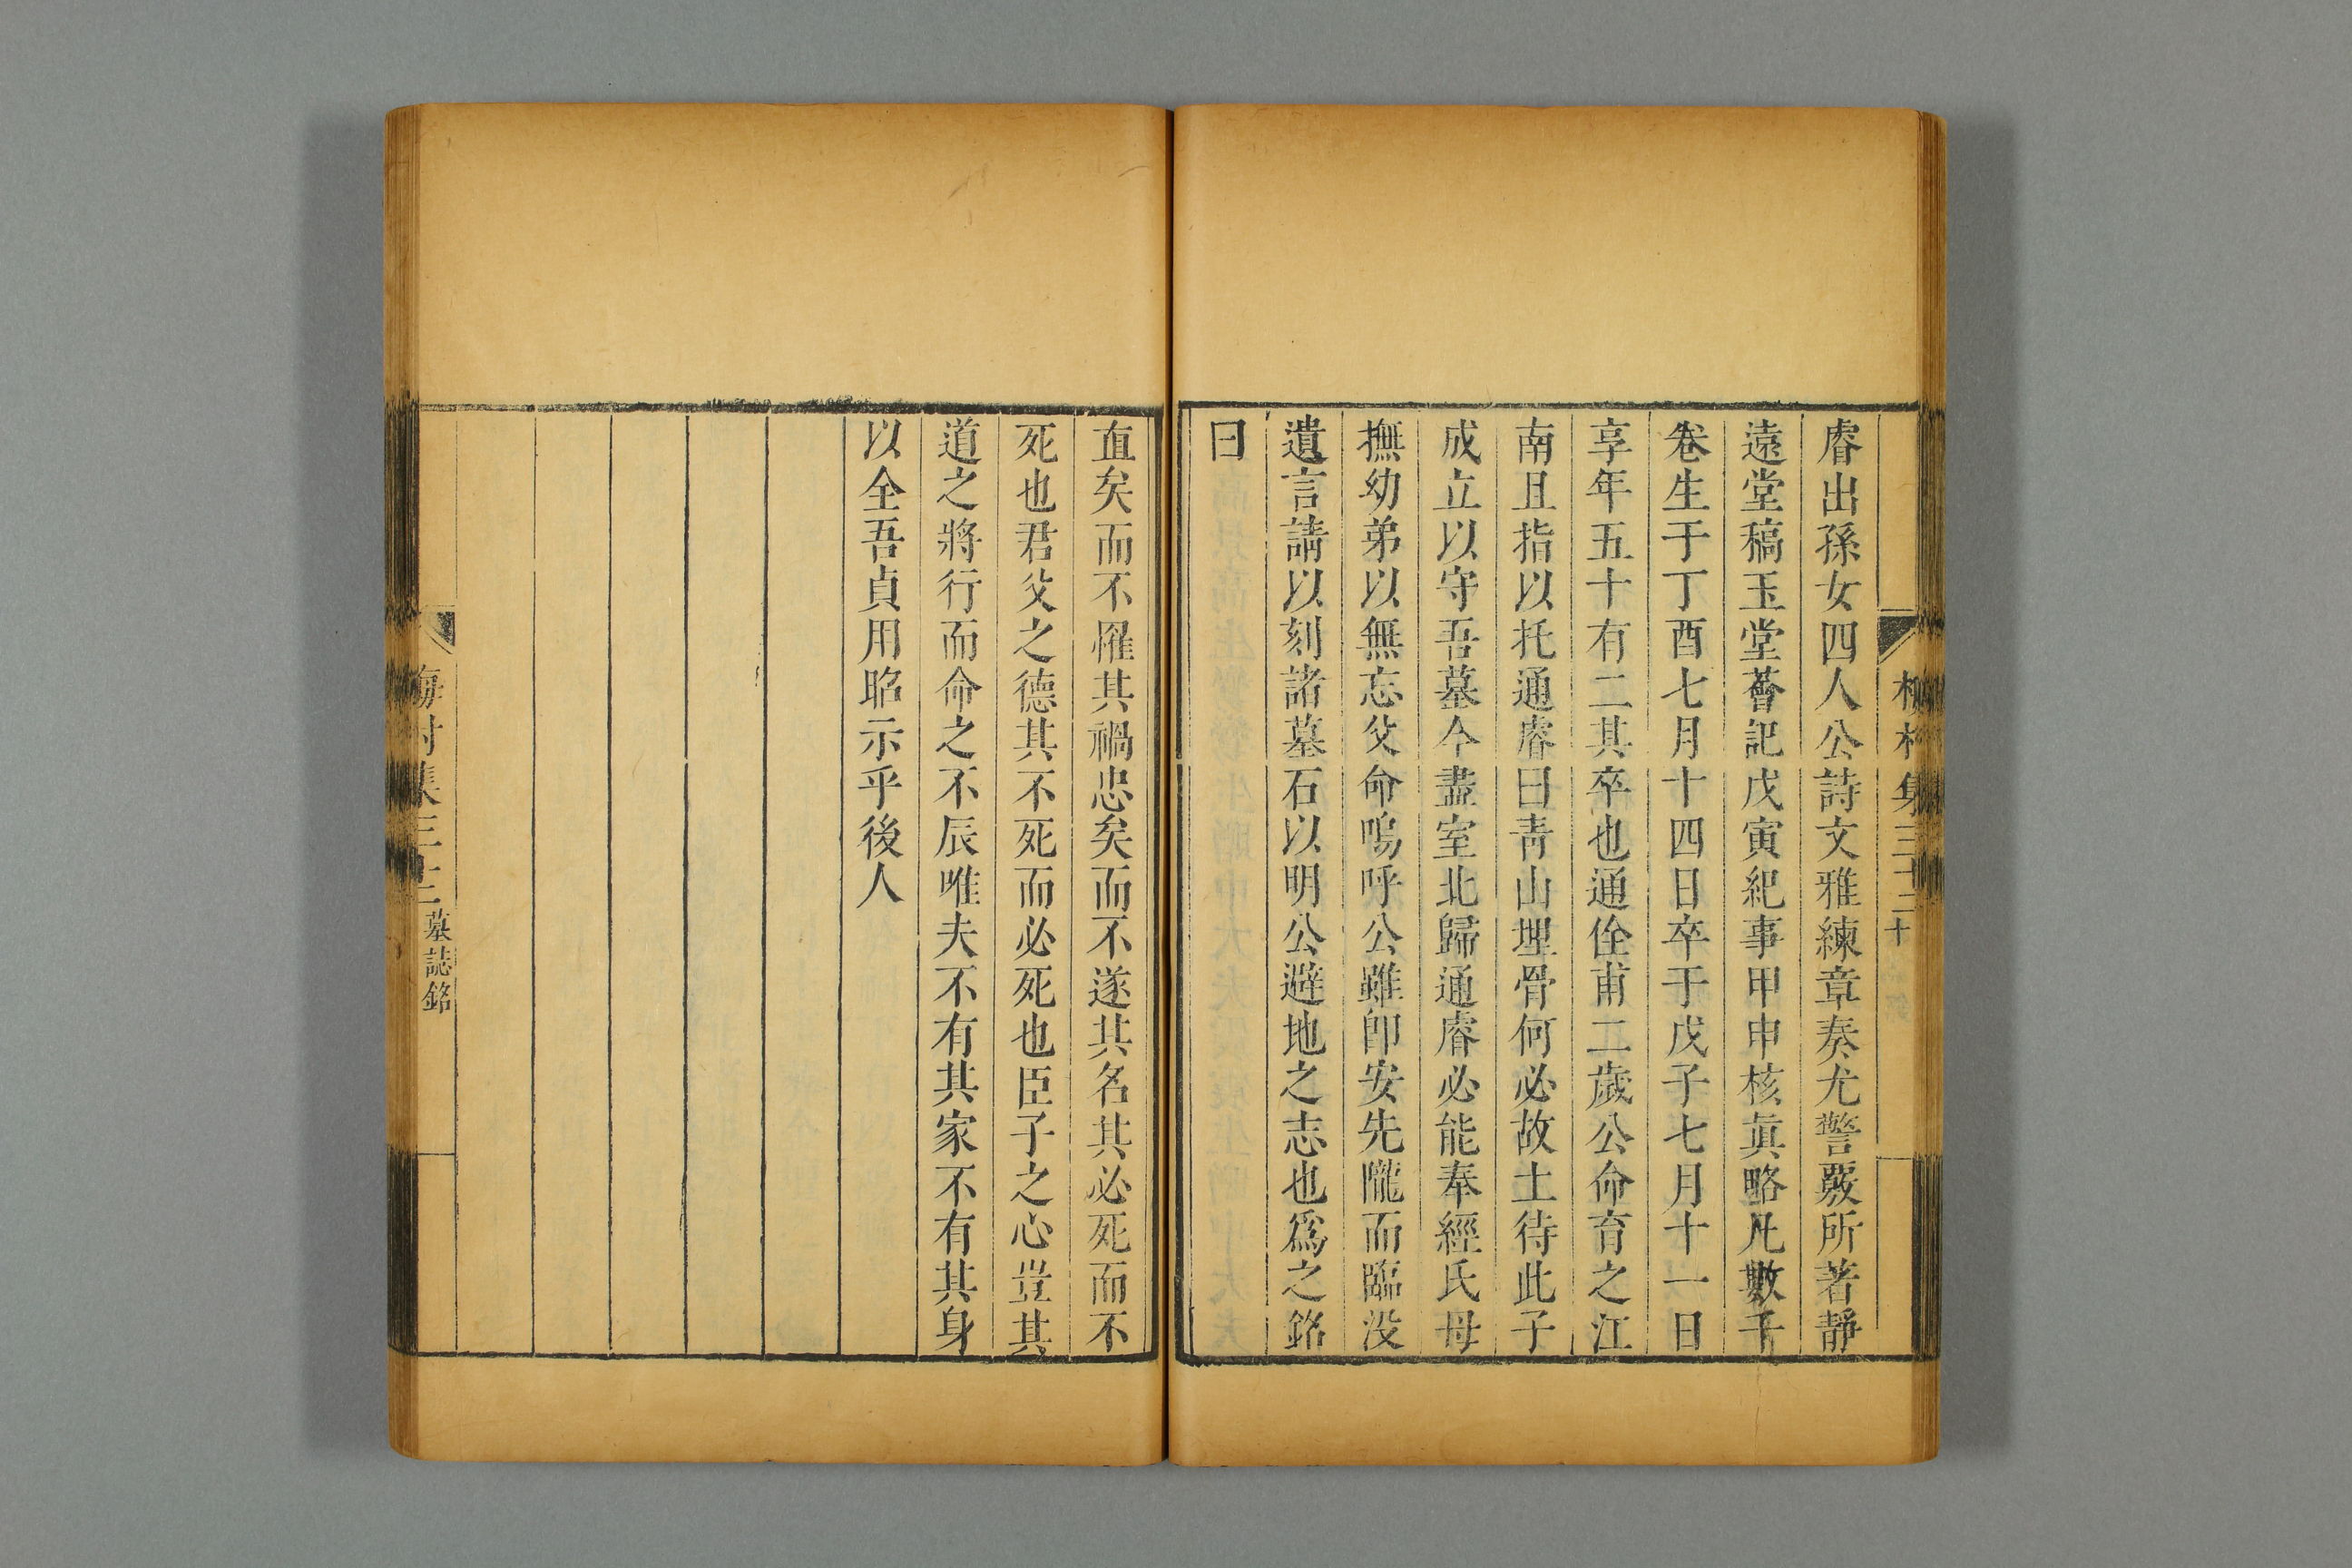 睿出孫女四人公詩文雅練章奏尤警覈所著靜
遠堂稿玉堂薈記戊寅紀事甲申核眞略凡數千
卷生于丁酉七月十四日卒于戊子七月十一日
享年五十有二其卒也通佺甫二歲公命育之江
南且指以托通睿曰靑山埋骨何必故土待此子
成立以守吾墓今盡室北歸通睿必能奉經氏母
撫幼弟以無忘父命嗚呼公雖卽安先隴而臨没
遺言請以刻諸墓石以明公避地之志也爲之銘
曰
直矣而不罹其禍忠矣而不遂其名其必死而不
死也君父之德其不死而必死也臣子之心豈其
道之將行而命之不辰唯夫不有其家不有其身
以全吾貞用昭示乎後人
梅村集三十二
十
梅村集三十二
墓誌銘